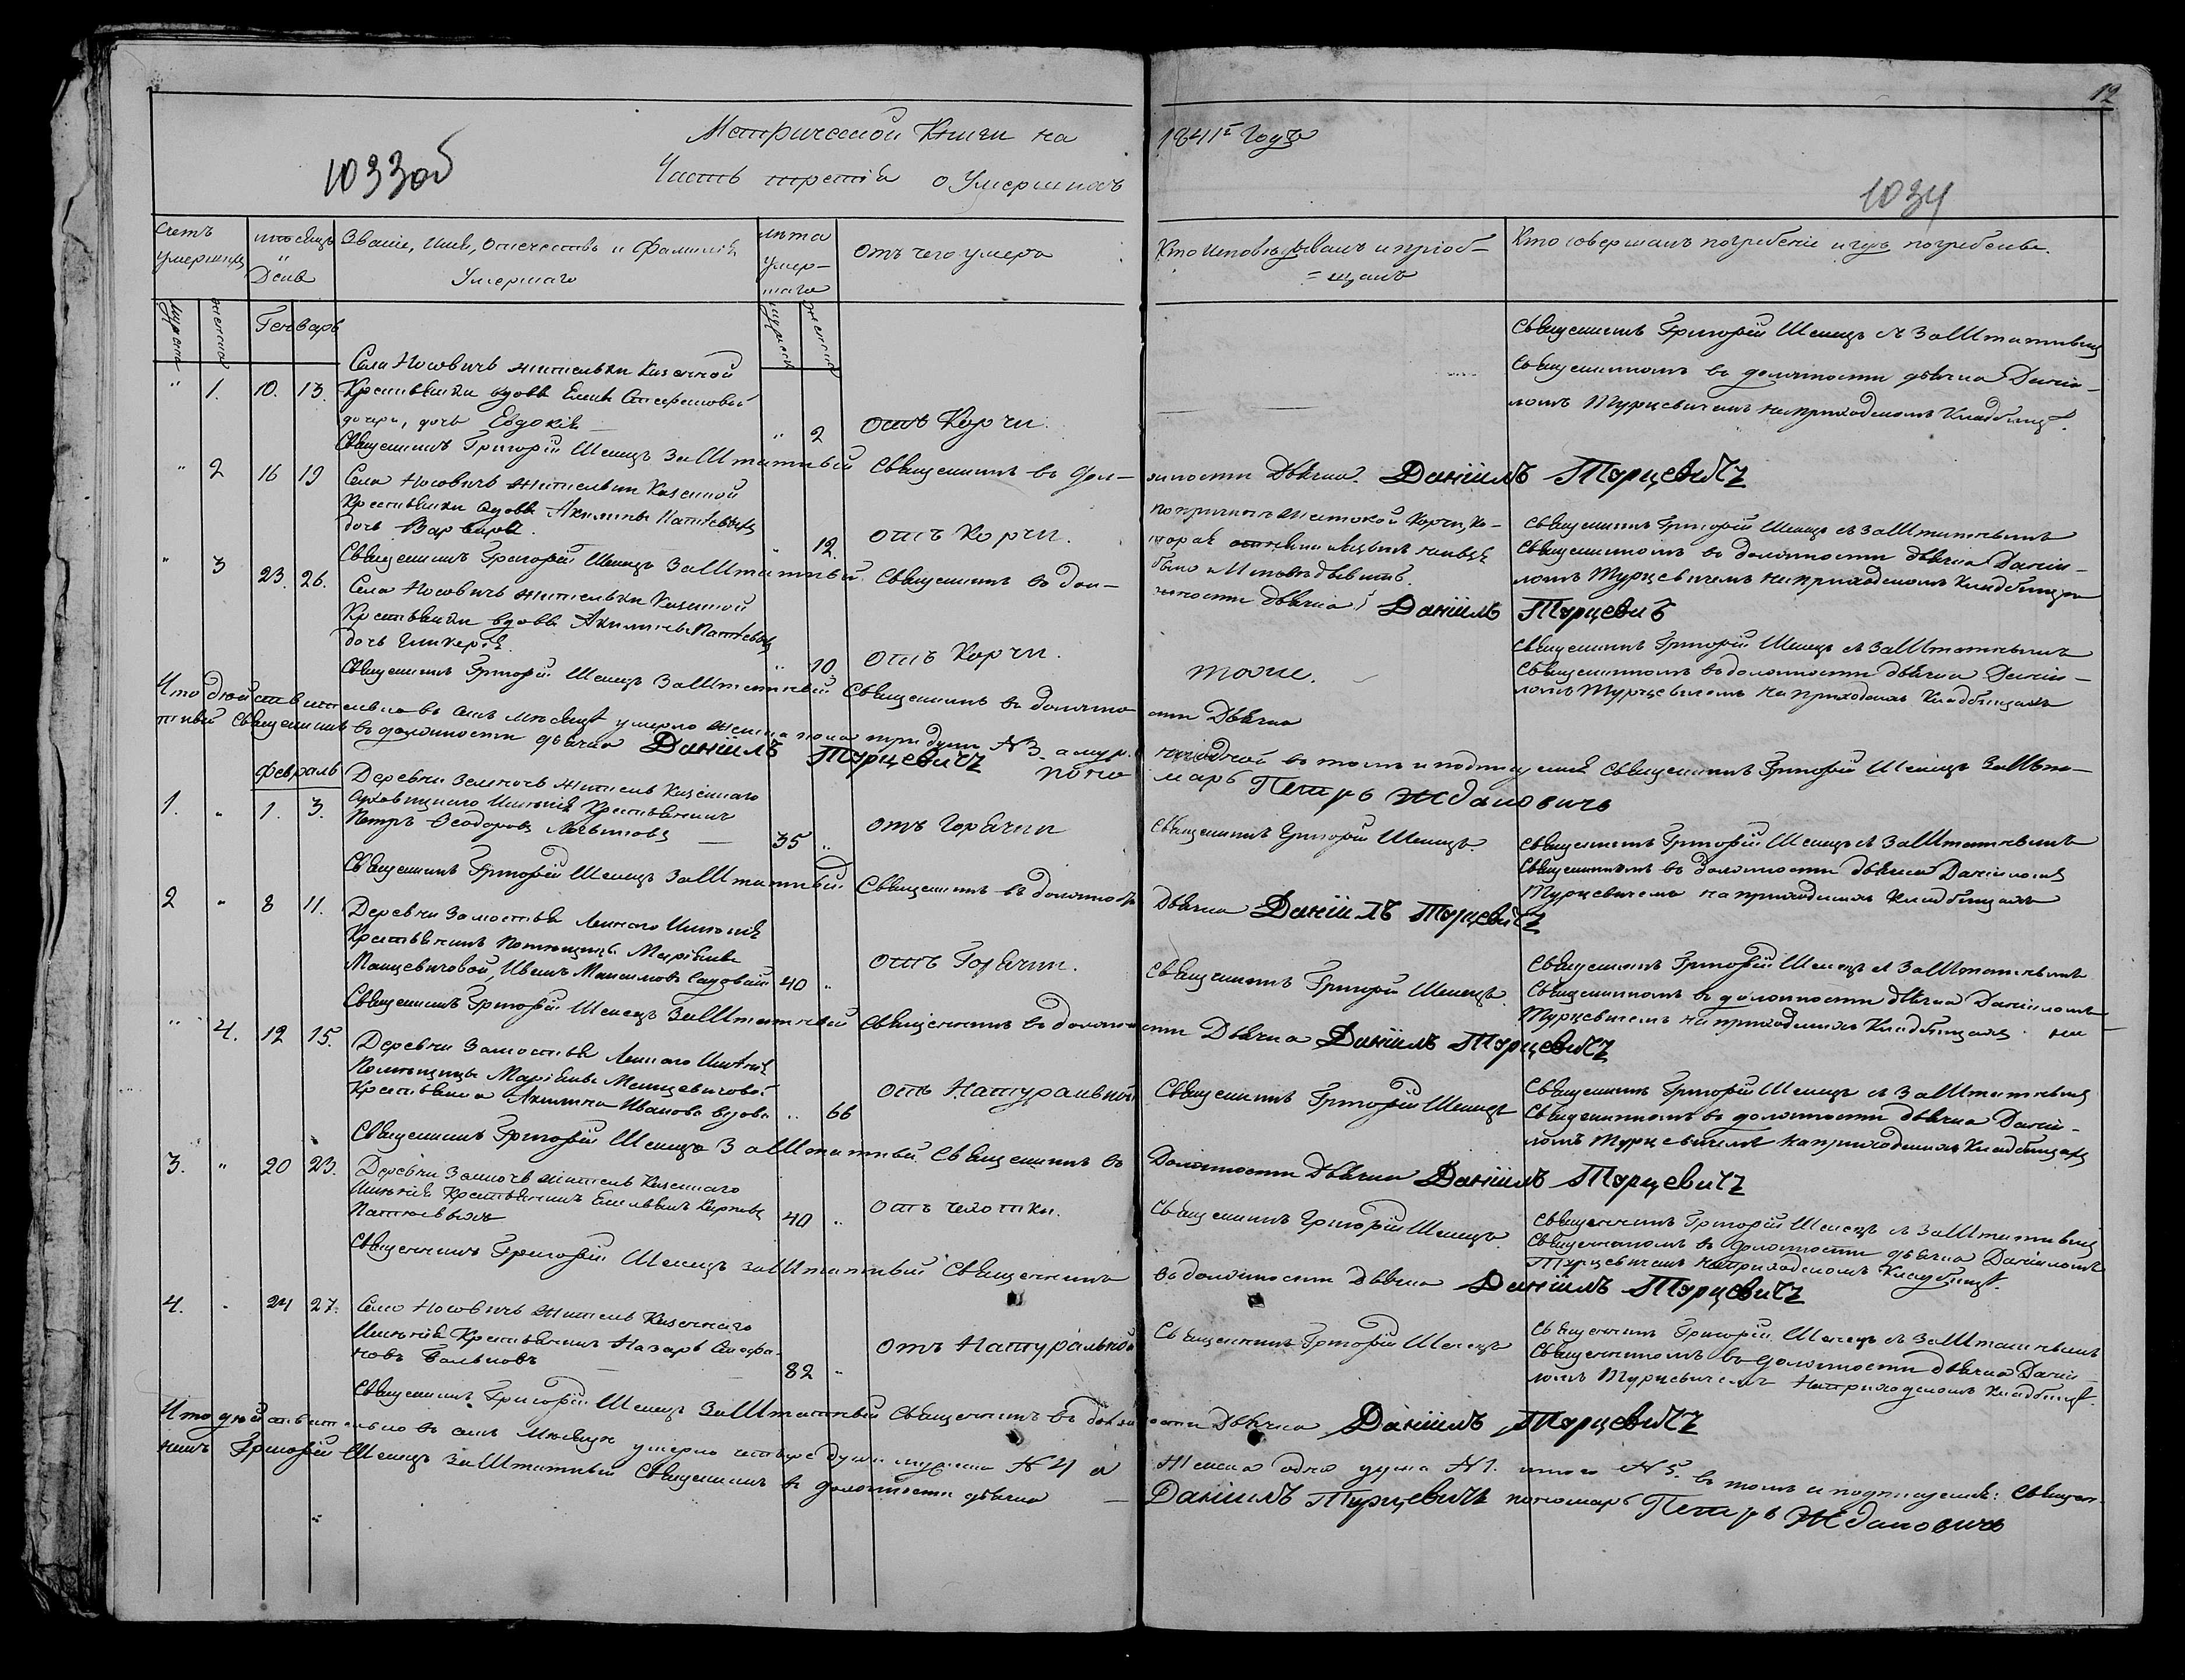 12
Метрической Книги на 1841г Года
1033об
Часть третія о Умершихъ
1034
Счетъ умершихъ
мѣсяцъ и День
Званіе, имя, Отечество и Фамилія Умершаго
лѣта умершаго
Отъ чего умеръ
Кто Исповѣдывалъ и пріоб-
=щалъ
Кто совершалъ погребеніе и гдѣ погребены.
мужеска
женска
Генварь
" 1. 10. 13.
Села Носовичь жительки Казенной
Крестьянки вдовы Елены Стефановой
дочери, дочь Евдокія
" 2
отъ Корчи.
Священникъ Григорій Шелецъ съ заШтатнымъ
Священникомъ въ должности дьячка Даніи-
ломъ Турцевичемъ на приходскомъ Кладбищѣ.
Священникъ Григорій Шелецъ ЗаШтатный Священникъ въ дол-
жности Дьячка Даніилъ Турцевичъ
" 2 16 19
Села Носовичь жительки Казенной
Крестьянки вдовы Акилины
дочь Варвара.
" 12.
отъ Корчи.
По причинѣ жестокой Корчи, ко-
торая
было и Исповѣдывать.
Священникъ Григорій Шелецъ съ заШтатнымъ
Священникомъ въ должности дьячка Даніи-
ломъ Турцевичемъ на приходскомъ Кладбищѣ
Священникъ Григорій Шелецъ ЗаШтатный Священникъ въ дол-
жности дьячка Даніилъ Турцевичъ
" 3 23. 26.
Села Носовичь жительки Казенной
Крестьянки вдовы Акилины
дочь Гликерія.
" 10
отъ Корчи.
тоже.
Священникъ Григорій Шелецъ съ ЗаШтатнымъ
Священникомъ въ должности дьячка Даніи-
ломъ Турцевичемъ на приходскомъ Кладбищахъ
Священникъ Григорій Шелецъ ЗаШтатный Священникъ въ должно-
сти Дьячка
Что дѣйствительно въ семъ мѣсяцѣ умерло женска пола три души №3. а муж. ниодной въ томъ и подписуемся Священникъ Григорій Шелецъ ЗаШта-
тный Священникъ въ должности дьячка Даніилъ Турцевичъ пономарь Петръ Ждановичъ
Февраль
1. " 1. 3.
Деревни житель Казеннаго
Имѣнія Крестьянинъ
Петръ Ѳеодоровъ
35 "
отъ Горячки
Священникъ Григорій Шелецъ.
Священникъ Григорій Шелецъ съ ЗаШтатнымъ
Священникомъ въ должности дьячка Даніиломъ
Турцевичемъ на приходскихъ Кладбищахъ
Священникъ Григорій Шелецъ ЗаШтатный Священникъ въ должности
Дьячка Даніилъ Турцевичъ
2 " 8 11.
Деревни Замостья Имѣнія
Крестьянинъ Помѣщицы Маріанны
Манцевичовой, Иванъ Максимовъ Садовскій
40 "
отъ Горячки.
Священникъ Григорій Шелецъ.
Священникъ Григорій Шелецъ съ ЗаШтатнымъ
Священникомъ въ должности дьячка Даніиломъ
Турцевичемъ на приходскихъ Кладбищахъ
Священникъ Григорій Шелецъ ЗаШтатный Священникъ въ должно-
сти Дьячка Даніилъ Турцевичъ
" 4. 12 15.
Деревни Замостья Имѣнія
Помѣщицы Маріанны Манцевичовой
Крестьянка Акилина Иванова вдова
" 66
отъ Натуральной
Священникъ Григорій Шелецъ
Священникъ Григорій Шелецъ съ ЗаШтатнымъ
Священникомъ въ должности дьячка Даніи-
ломъ Турцевичемъ на приходскихъ Кладбищахъ
Священникъ Григорій Шелецъ ЗаШтатный Священникъ въ
Должности Дьячка Даніилъ Турцевичъ
3. " 20 23.
Деревни житель Казеннаго
Имѣнія Крестьянинъ Емельянъ Карповъ
40 "
отъ чехотки.
Священникъ Григорій Шелецъ.
Священникъ Григорій Шелецъ съ ЗаШтатнымъ
Священникомъ въ должности дьячка Даніиломъ
Турцевичемъ на приходскомъ Кладбищѣ.
Священникъ Григорій Шелецъ заШтатный Священникъ
въ должности Дьячка Даніилъ Турцевичъ
4. " 24 27.
Села Носовичь житель Казеннаго
Имѣнія Крестьянинъ Назаръ Стефа-
новъ
82 "
отъ Натуральной
Священникъ Григорій Шелецъ
Священникъ Григорій Шелецъ съ ЗаШтатнымъ
Священникомъ въ должности дьячка Даніи-
ломъ Турцевичемъ на приходскомъ Кладбищѣ.
Священникъ Григорій Шелецъ ЗаШтатный Священникъ въ должн-
ости Дьячка Даніилъ Турцевичъ
Что дѣйствительно въ семъ Мѣсяцѣ умерло четыре души мужска №4 и Женска одна душа №1. итого №5. въ томъ и подписуемся: Священ-
никъ Григорій Шелецъ заШтатный Священникъ въ должности дьячка — Даніилъ Турцевичъ пономарь Петръ Ждановичъ